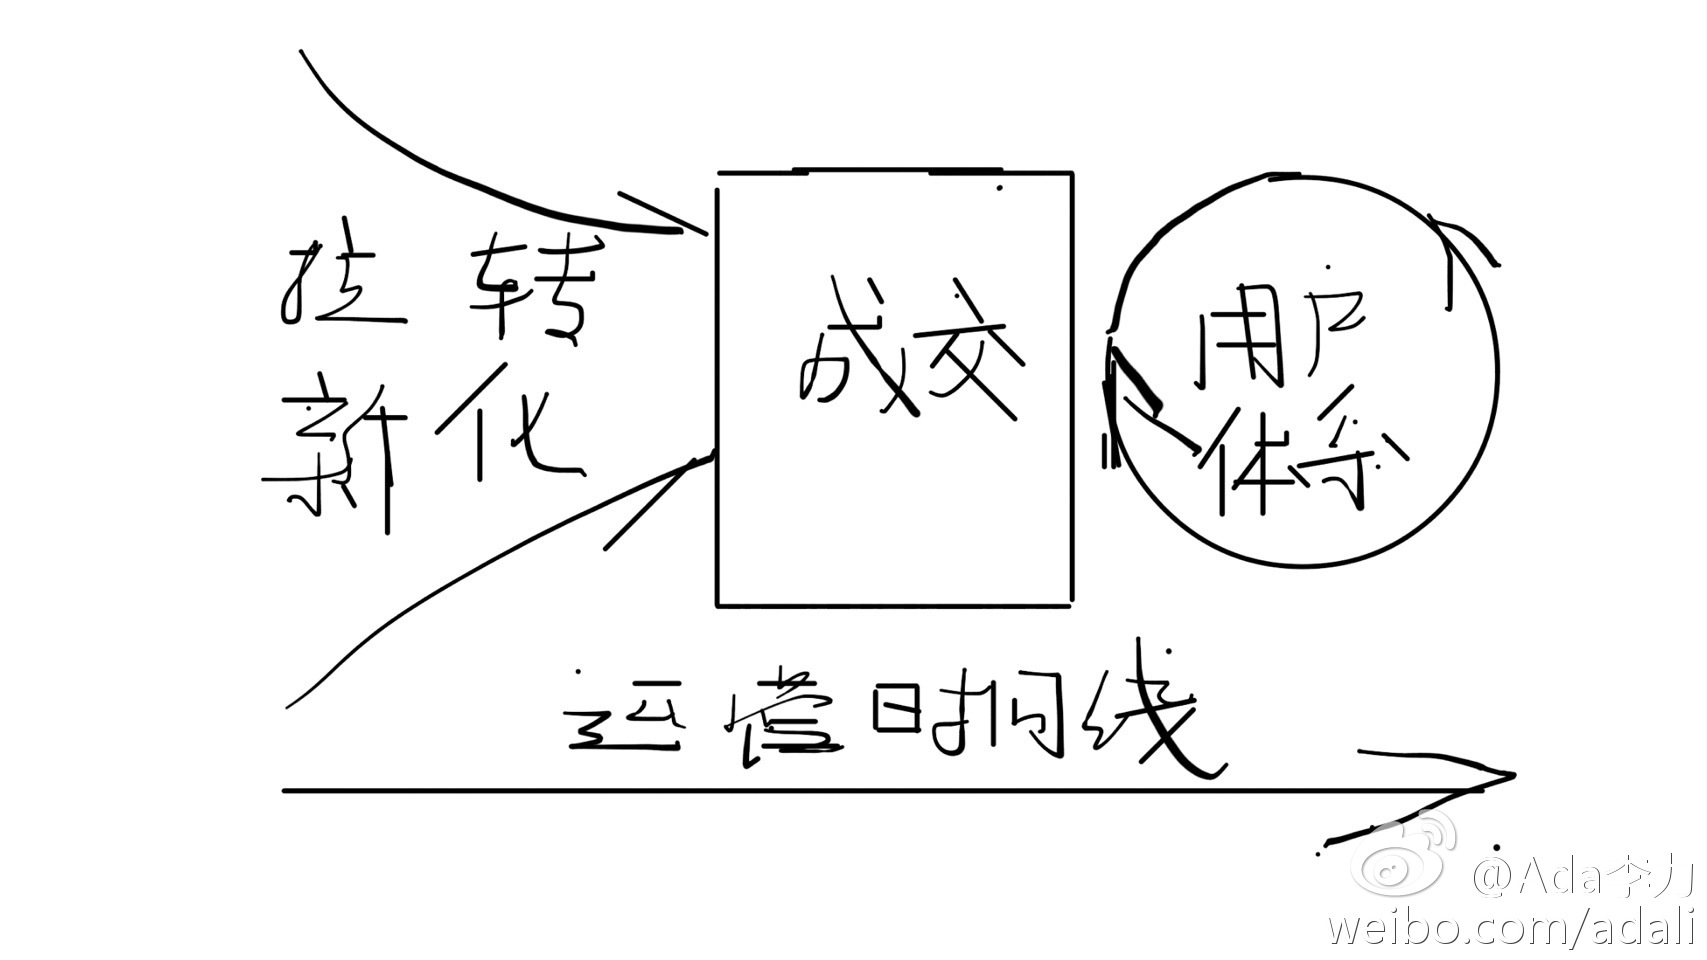 拉新
转化
成交
用户
体系
运营时间线
@Ada李力
weibo.com/adali